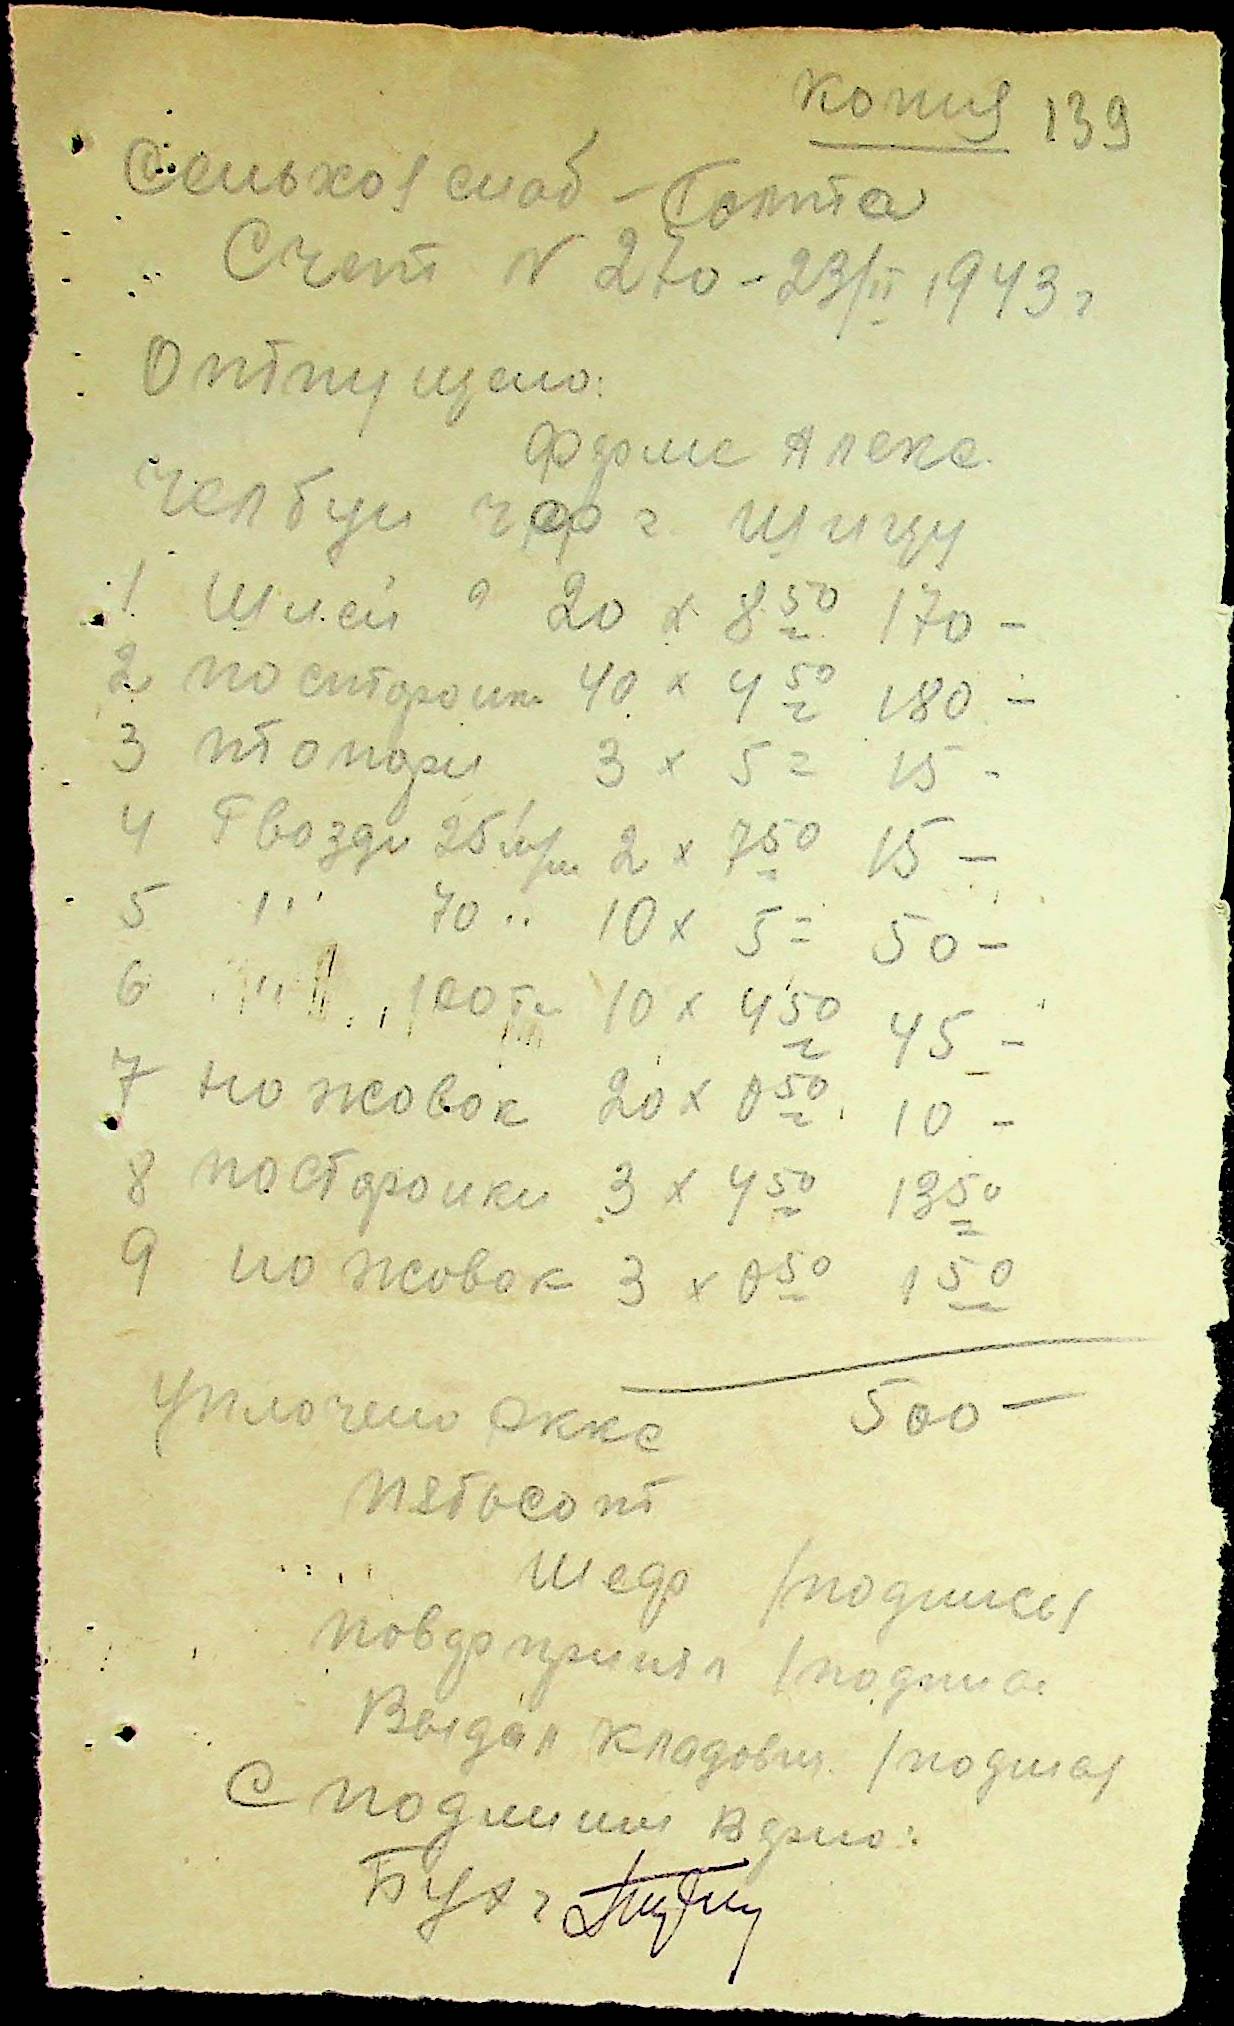 Копия 139
Сельхозснаб - Голта
Счет N 270 - 23/II 1943 г
Отпущено:
ферме Алекс.
чер г. Шицу
1 Шлей 20 x 8 50 170 -
2 посторонк 40 x 4 50 180 -
3 топори 3 x 5 = 15 -
4 Гвозди 25 2 x 7 50 15 -
5 " 70 " 10 x 5 = 50 -
6 " 100 10 x 4 50 45 -
7 ножовок 20 x 0 50 10 -
8 посторонки 3 x 4 50 13 50
9 ножовок 3 x 0 50 1 50
Уплочено 500 -
пятьсот
Шеф /подпись/
принял /подпись
Выдал кладовщ. /подпись/
С подлиным верно:
Бух